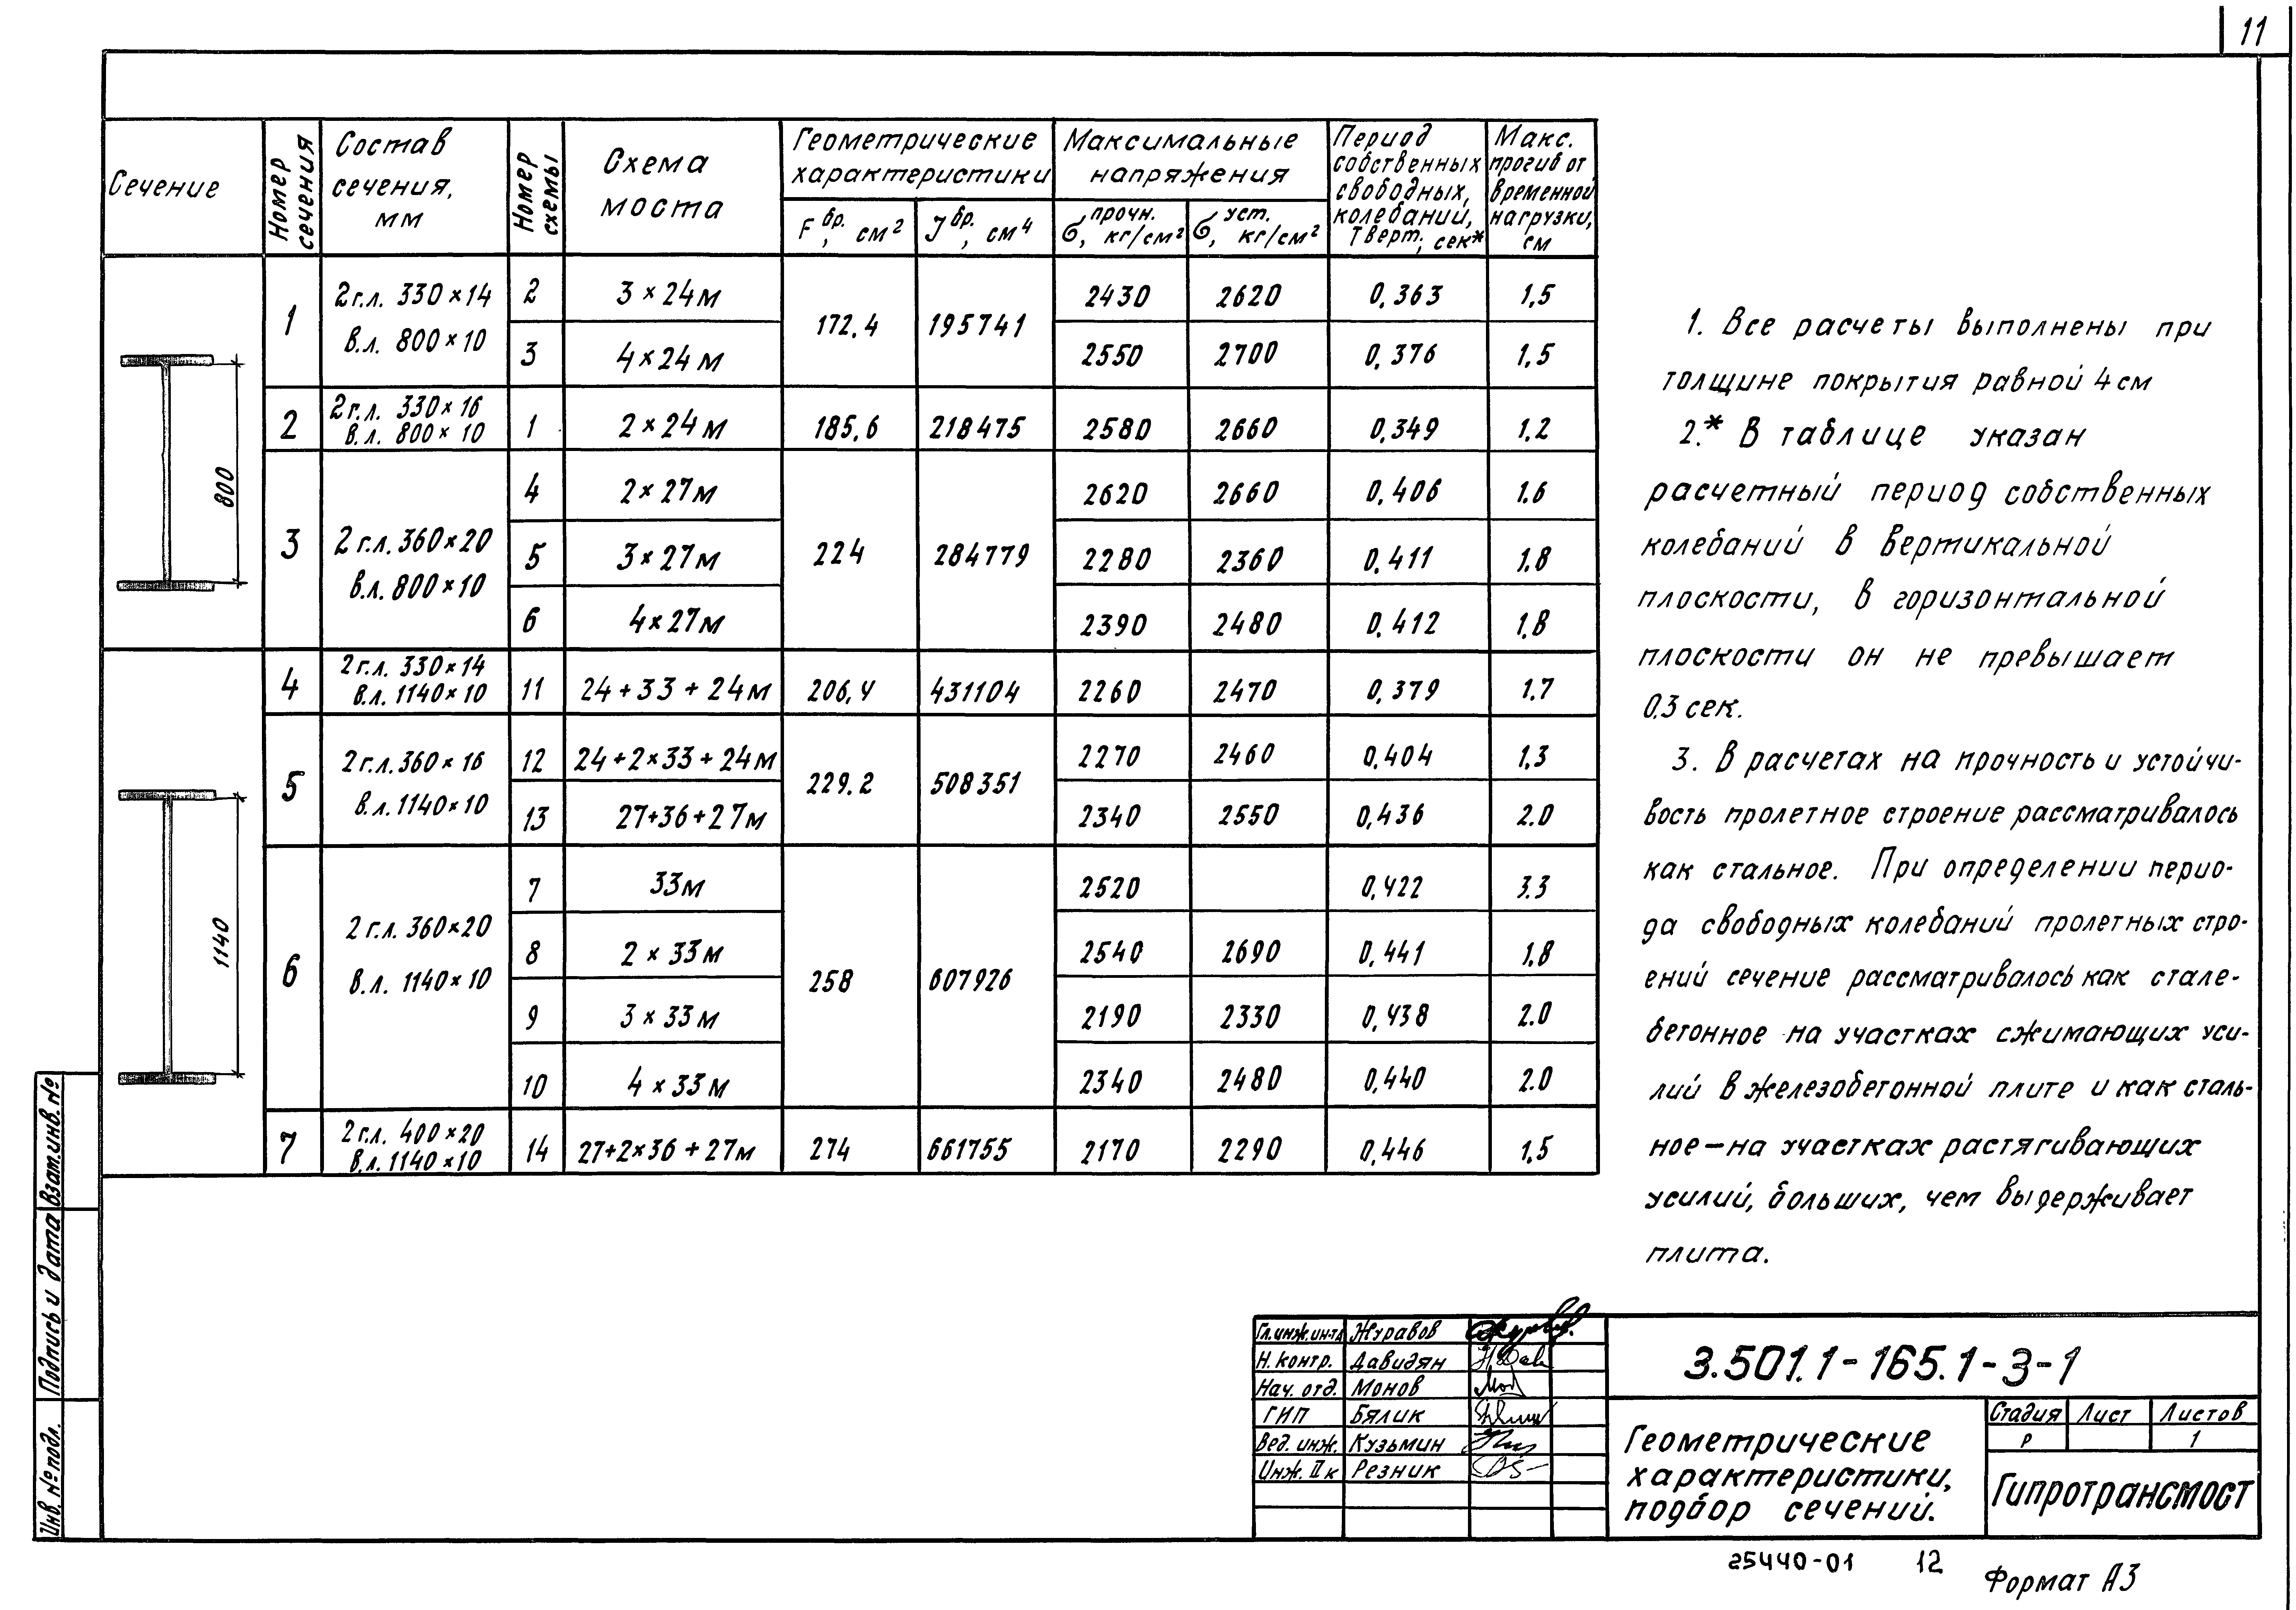 11
Сечение
Номер сечения
Состав сечения, мм
Номер схемы
Схема моста
Геометрические характеристики
F бр., см²
J бр., см⁴
Максимальные напряжения
σ прочн., кг/см²
σ уст., кг/см²
Период собственных свободных, колебаний, Т верт., сек*
Макс. прогиб от временной нагрузки, см
800
1140
1
2 г.л. 330×14
в.л. 800×10
2 3×24м 172.4 195741 2430 2620 0,363 1,5
3 4×24м 2550 2700 0,376 1,5
2
2 г.л. 330×16
в.л. 800×10
1 2×24м 185,6 218475 2580 2660 0,349 1,2
3
2 г.л. 360×20
в.л. 800×10
4 2×27м 2620 2660 0,406 1.6
5 3×27м 224 284779 2280 2360 0,411 1.8
6 4×27м 2390 2480 0,412 1,8
4
2 г.л. 330×14
в.л. 1140×10
11 24+33+24м 206,4 431104 2260 2470 0,379 1.7
5
2 г.л. 360×16
в.л. 1140×10
12 24+2×33+24м 229.2 508351 2270 2460 0,404 1,3
13 27+36+27м 2340 2550 0,436 2.0
6
2 г.л. 360×20
в.л. 1140×10
7 33м 2520 0,422 3.3
8 2×33м 258 607926 2540 2690 0,441 1,8
9 3×33м 2190 2330 0,438 2.0
10 4×33м 2340 2480 0,440 2.0
7
2 г.л. 400×20
в.л. 1140×10
14 27+2×36+27м 274 661755 2170 2290 0,446 1,5
1. Все расчеты выполнены при
толщине покрытия равной 4 см
2.* В таблице указан
расчетный период собственных
колебаний в вертикальной
плоскости, в горизонтальной
плоскости он не превышает
0.3 сек.
3. В расчетах на прочность и устойчи-
вость пролетное строение рассматривалось
как стальное. При определении перио-
да свободных колебаний пролетных стро-
ений сечение рассматривалось как стале-
бетонное на участках сжимающих уси-
лий в железобетонной плите и как сталь-
ное – на участках растягивающих
усилий, больших, чем выдерживает
плита.
Взат.инв. №
Подпись и дата
Инв. № подл.
Гл.инж.ин-та Журавов
Н. контр. Давидян
Нач. отд. Монов
ГИП Бялик
Вед. инж. Кузьмин
Инж. II к Резник
3.501.1-165.1-3-1
Геометрические
характеристики,
подбор сечений.
Стадия Лист Листов
Р 1
Гипротрансмост
25440-01 12
Формат А3